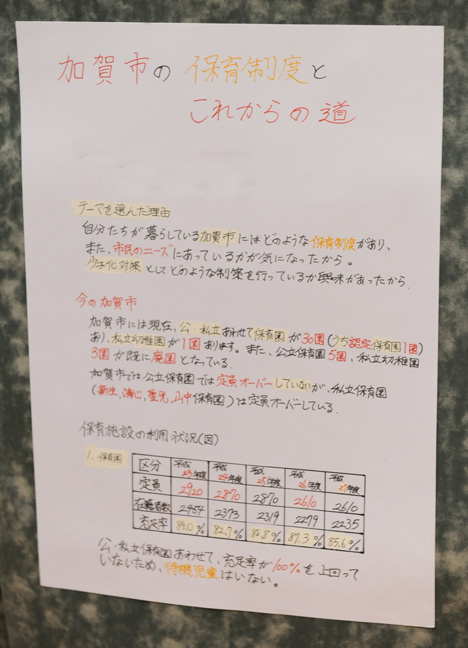 加賀市の保育制度と
これからの道
テーマを選んだ理由
自分たちが暮らしている加賀市にはどのような保育制度があり、
また、市民のニーズにあっているかが気になったから。
少子化対策としてどのような制策を行っているか興味があったから.
今の加賀市
加賀市には現在、公・私立あわせて保育園が30園(うち認定保育園1園)
あり、私立幼稚園が1園あります。また、公立保育園5園、私立幼稚園
3園が既に廃園となっている.
加賀市では公立保育園では定員オーバーしていないが、私立保育園
( 山中保育園)は定員オーバーしている.
保育施設の利用状況(図)
1. 保育園
区分 平成23年度 平成24年度 平成25年度 平成26年度 平成27年度
定員 2920 2870 2870 2610 2610
在籍者数 2454 2373 2319 2279 2235
充足率 84.0% 82.7% 80.8% 87.3% 85.6%
公・私立保育園あわせて、充足率が100%を上回って
いないため、待機児童はいない。